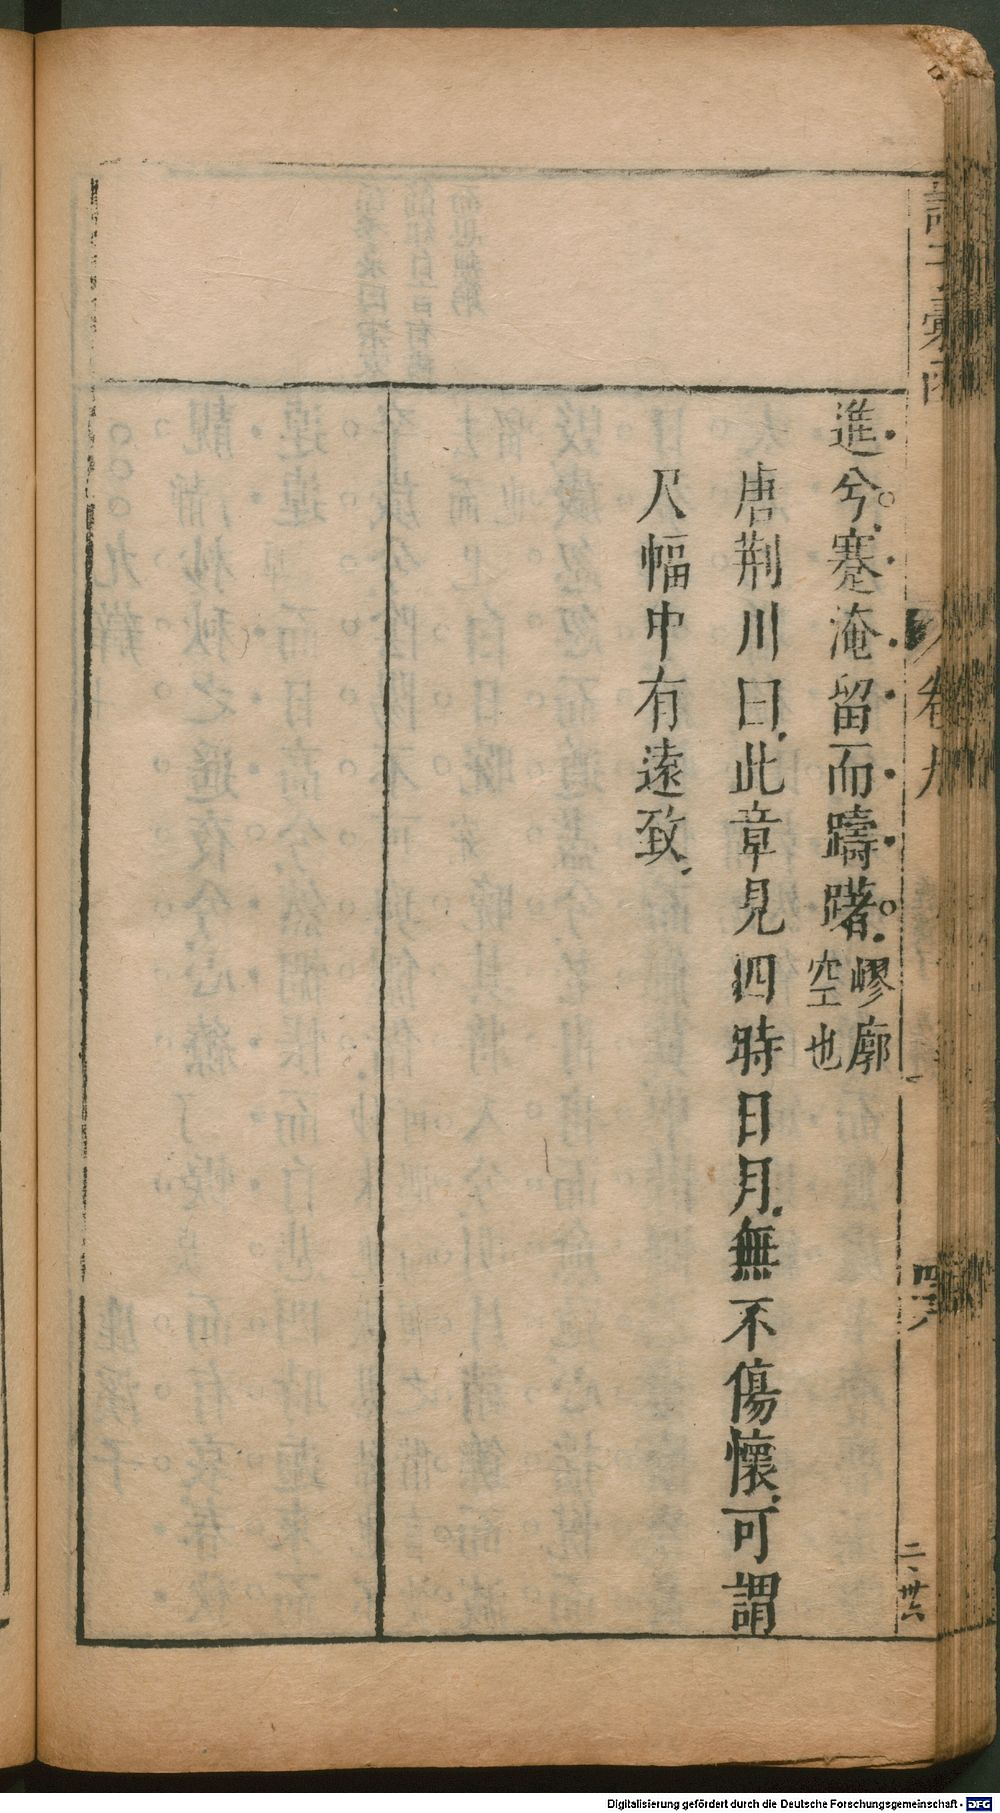 進兮蹇淹留而躊躇嵺廓
空也
唐荆川曰此章見四時日月無不傷懷可謂
尺幅中有遠致
卷九
二卅六
Digitalisierung gefördert durch die Deutsche Forschungsgemeinschaft - DFG